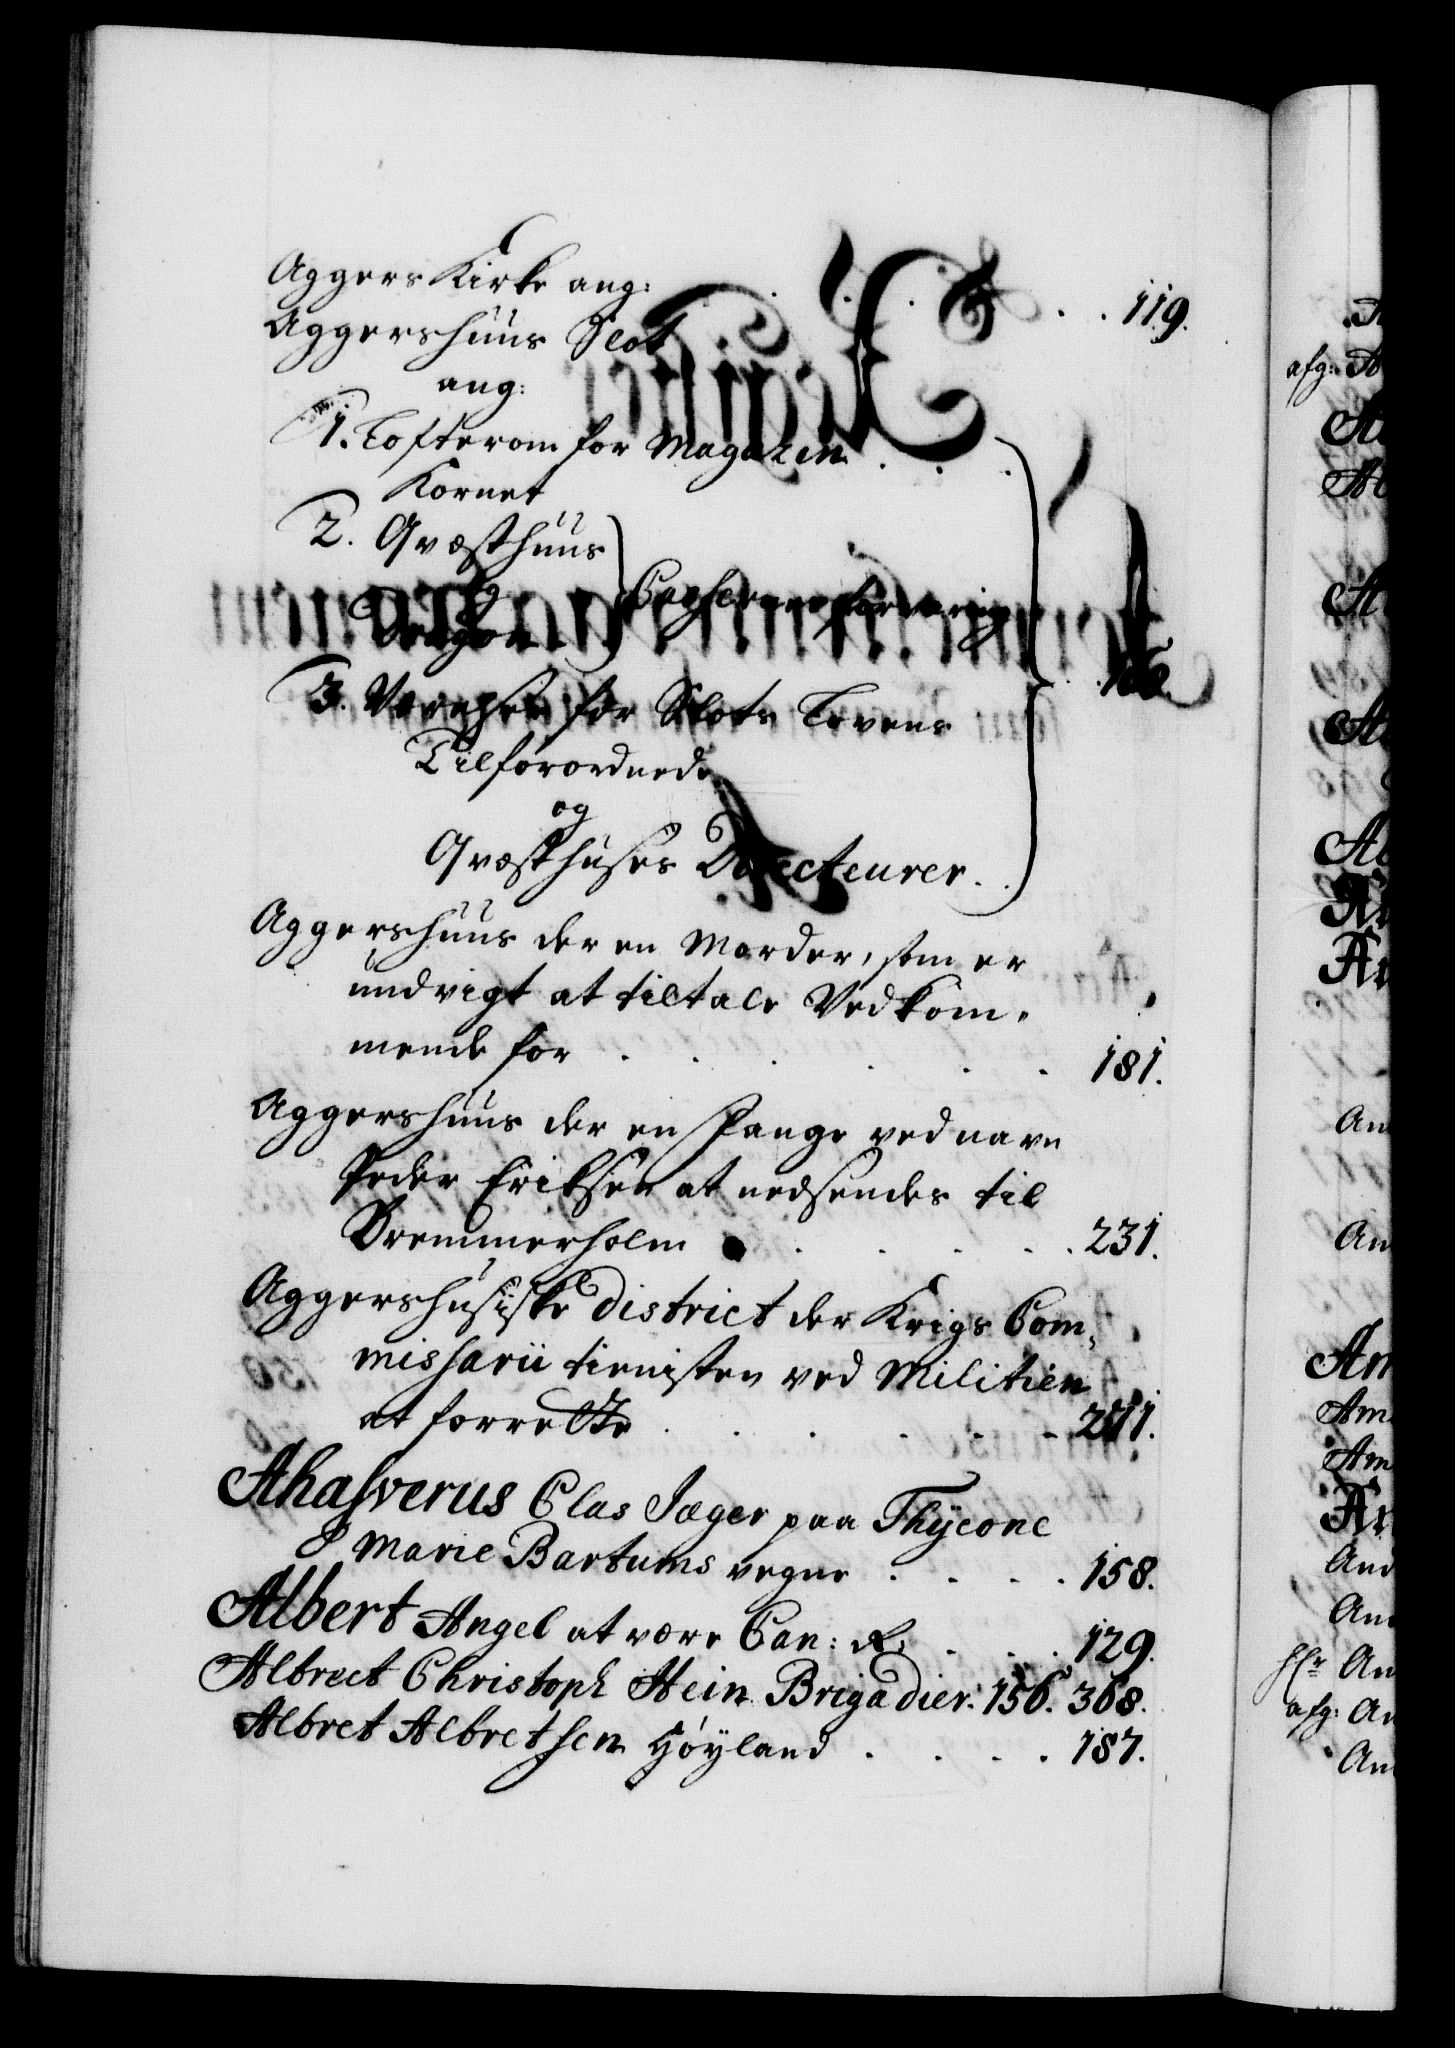 Aggers Kirke ang: . . . . . 119.
Aggershuus Slot
ang:
1. Lofterom for Magazin
Kornet
2. Qvæsthuus
og
3. for Slots Lovens
Tilforordnede
og
Qvæsthuses Directeurer.
Aggershuus der en Morder, som er
undvigt at tiltale Vedkom-
mende for . . . . . 181.
Aggershuus der en Fange ved navn
Peder Eriksen at nedsendes til
Bremmerholm . . . . 231.
Aggershusiske district der Krigs Com-
missarii tienisten ved Militien
at forrette . . . . .
Ahasverus Clas Jæger paa Thyeone
Marie Bartums vegne . . . . 158.
Albert Angel at være Can: R. . . . 129.
Albrect Christoph Hein Brigadier. 156. 368.
Albret Albretsen Høyland . . . . 187.